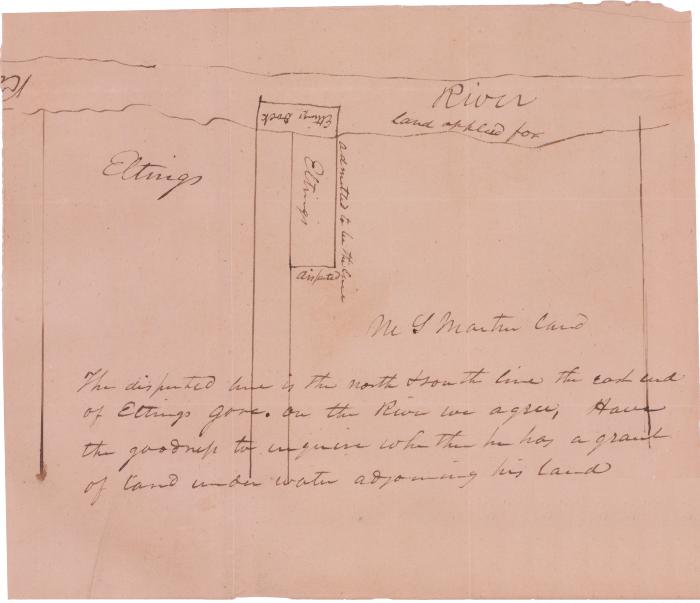 River
land applied for
Eltings Dock
Eltings
Eltings
admitted to be the line
disputed
M S Martin land
The disputed line is the north & south line the east end
of Eltings Gore. on the River we agree, Have
the goodness to inquire whether he has a grant
of land under water adjoining his land